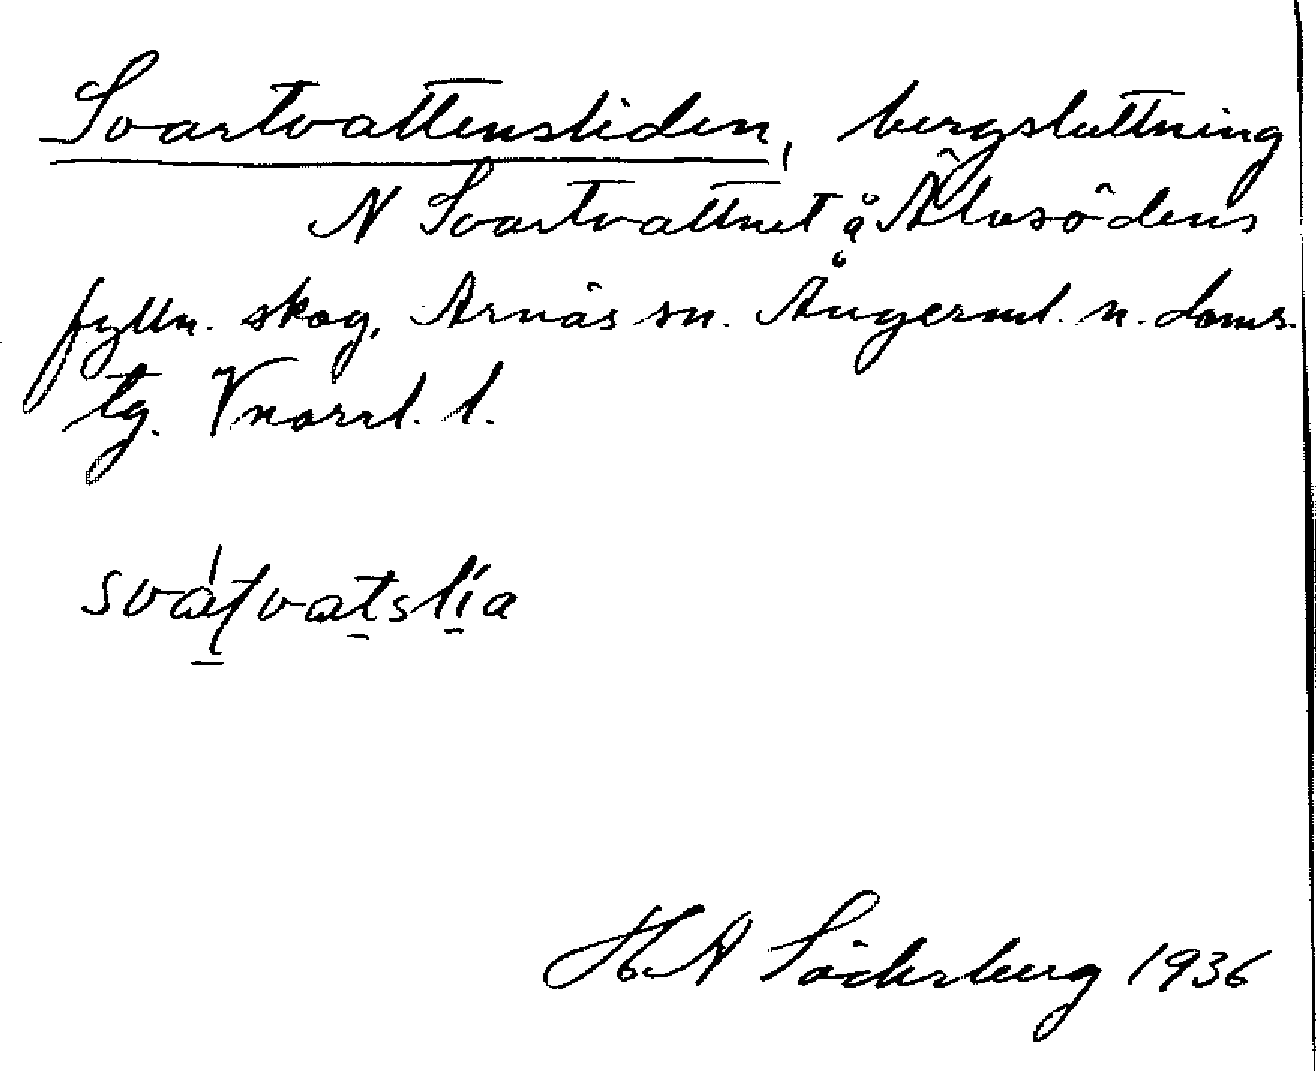 Svartvattensliden, bergsluttning
N Svartvattnet å Älvsödens
fylln. skog, Arnäs sn. Ångerml. n. doms.
tg. Vnorrl. l.
H A Söderberg 1936